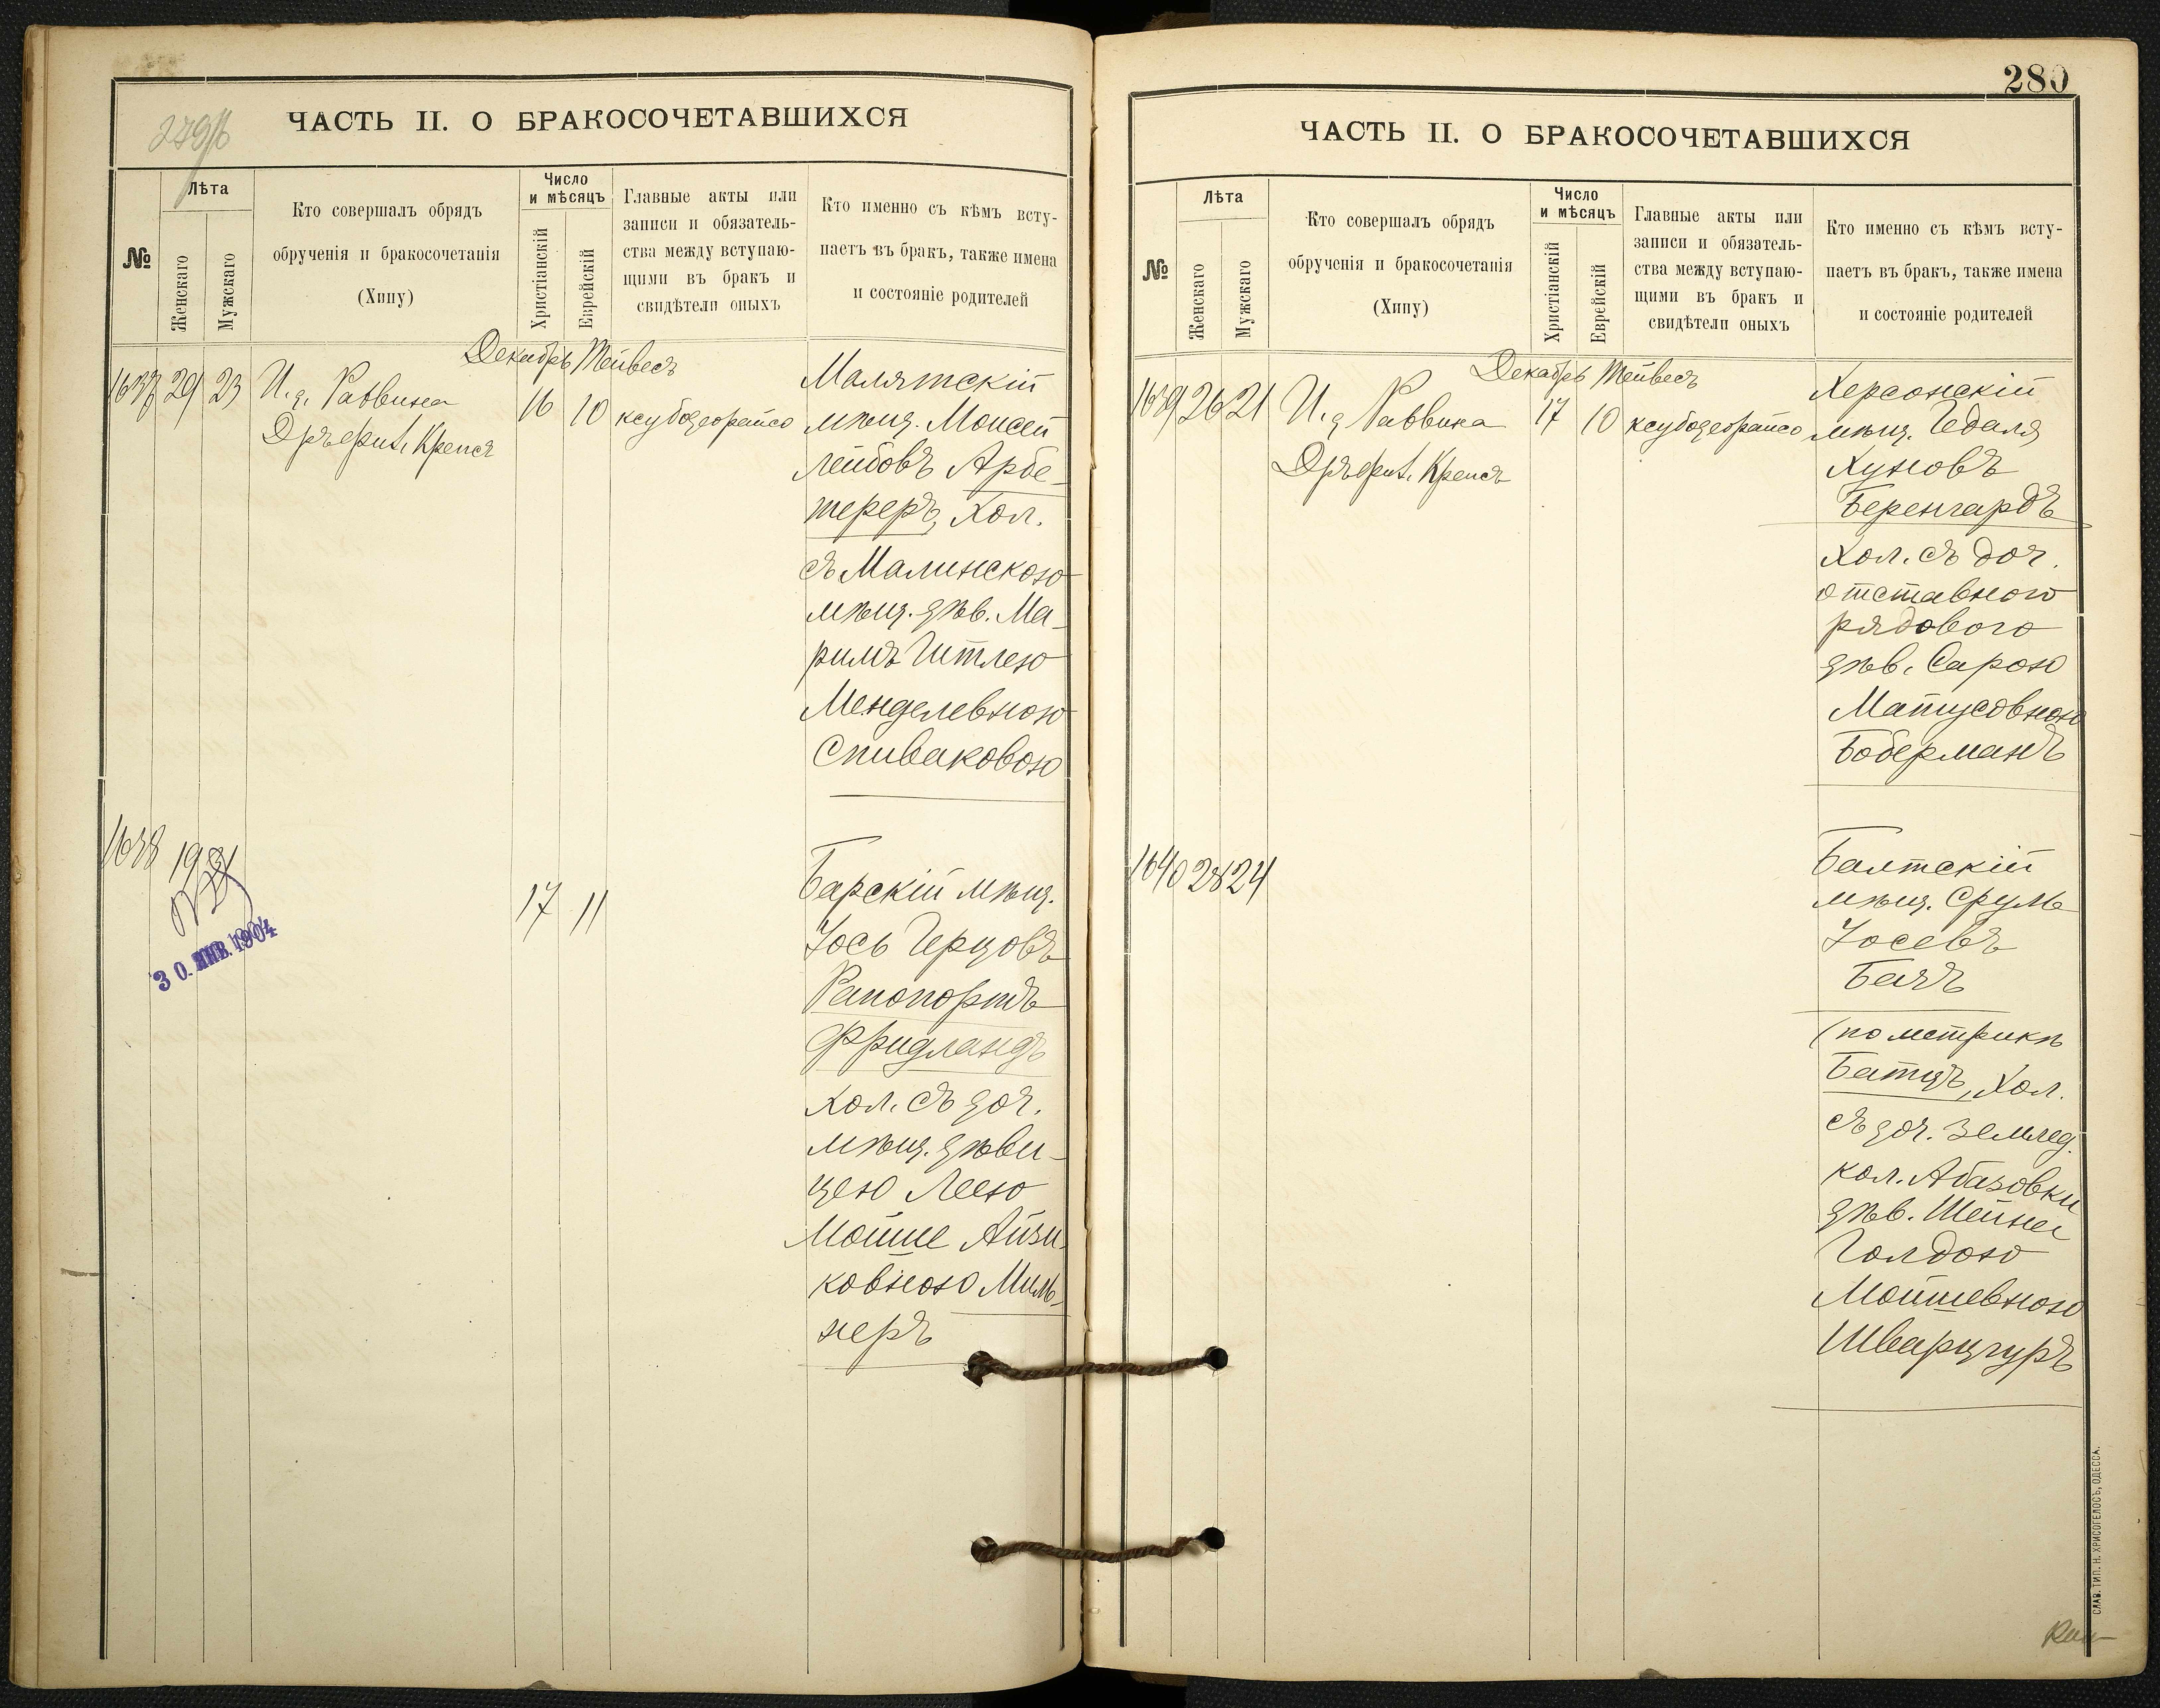 279/б
ЧАСТЬ II. О БРАКОСОЧЕТАВШИХСЯ
№
Лѣта
Женскаго
Мужскаго
Кто совершалъ обрядъ
обрученія и бракосочетанія
(Хипу)
Число
и мѣсяцъ
Христіанскій
Еврейскій
Главные акты или
записи и обязатель-
ства между вступаю-
щими въ бракъ и
свидѣтели оныхъ
Кто именно съ кѣмъ всту-
паетъ въ бракъ, также имена
и состояніе родителей
Декабрь Тейвесъ
1637 29 23 И. д. Раввина 16 10 ксубодеорайсо
Крепсъ
Малятскій
мѣщ. Моисей
Лейбовъ Арбе-
тереръ, Хол.
съ Малинскою
мѣщ. дѣв. Ма-
Гитлею
Менделевною
Спиваковою
1638 19
30. ЯНВ. 1904
17 11
Барскій мѣщ.
Іось Герцовъ
Рапопортъ
Фридландъ
Хол. съ доч.
мѣщ. дѣви-
цею Леею
Мойше Айзи-
ковною Миль-
неръ
280
ЧАСТЬ II. О БРАКОСОЧЕТАВШИХСЯ
№
Лѣта
Женскаго
Мужскаго
Кто совершалъ обрядъ
обрученія и бракосочетанія
(Хипу)
Число
и мѣсяцъ
Христіанскій
Еврейскій
Главные акты или
записи и обязатель-
ства между вступаю-
щими въ бракъ и
свидѣтели оныхъ
Кто именно съ кѣмъ всту-
паетъ въ бракъ, также имена
и состояніе родителей
Декабрь Тейвесъ
1639 26 21 И. д. Раввина 17 10 ксубодеорайсо
Крепсъ
Херсонскій
мѣщ. Гедаля
Хуновъ
Беренгардъ
Хол. съ доч.
отставного
рядового
дѣв. Сарою
Матусовною
Боберманъ
1640 28 24
Балтскій
мѣщ. Сруль
Іосевъ
Бацъ
(по метрикѣ
Батцъ, Хол.
съ доч. землед.
кол. Абазовки
дѣв. Шейне
Голдою
Мойшевною
Шварцгуръ
СЛАВ. ТИП. Н. ХРИСОГЕЛОСЪ, ОДЕССА.